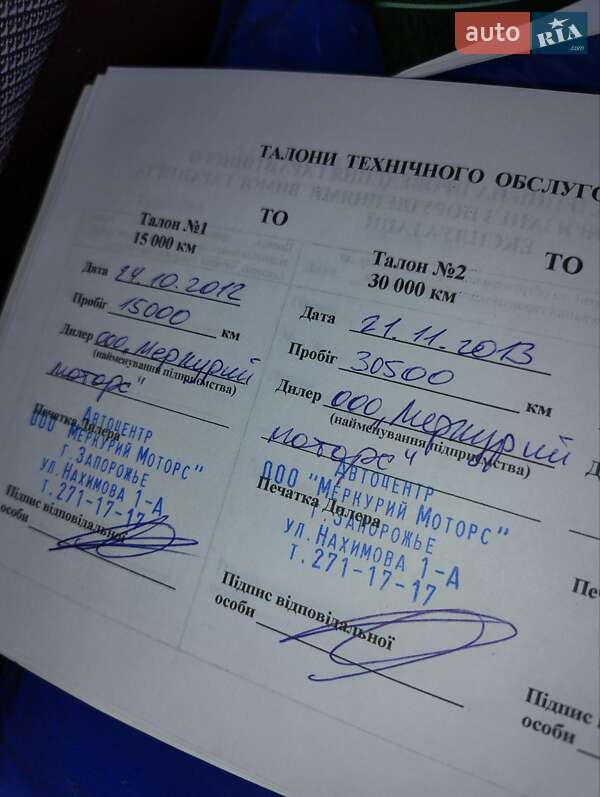 auto RIA .com
ТАЛОНИ ТЕХНІЧНОГО ОБСЛУГО
ТО
Талон №1
15 000 км
Дата 24.10.2012
Пробіг 15000 км
Дилер ООО „Меркурий
(найменування підприємства)
Моторс"
Печатка Дилера
Автоцентр
ООО "Меркурий Моторс"
г. Запорожье
ул. Нахимова 1-А
т. 271-17-17
Підпис відповідальної
особи
ТО
Талон №2
30 000 км
Дата 21.11.2013
Пробіг 30500 км
Дилер ООО „Меркурий
(найменування підприємства)
Моторс"
Автоцентр
ООО "Меркурий Моторс"
Печатка Дилера
г. Запорожье
ул. Нахимова 1-А
т. 271-17-17
Підпис відповідальної
особи
Д
Пе
Підпис
особи